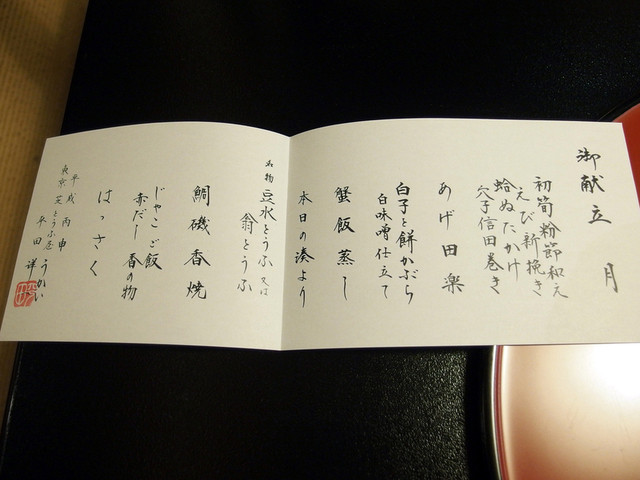 御献立 月
初筍粉節和え
えび新挽き
蛤ぬたかけ
穴子信田巻き
あげ田楽
白子と餅かぶら
白味噌仕立て
蟹飯蒸し
本日の湊より
名物 豆水とうふ 又は
翁とうふ
鯛磯香焼
じゃこご飯
赤だし 香の物
はっさく
平成丙申
東京芝とうふ屋うかい
平田 祥